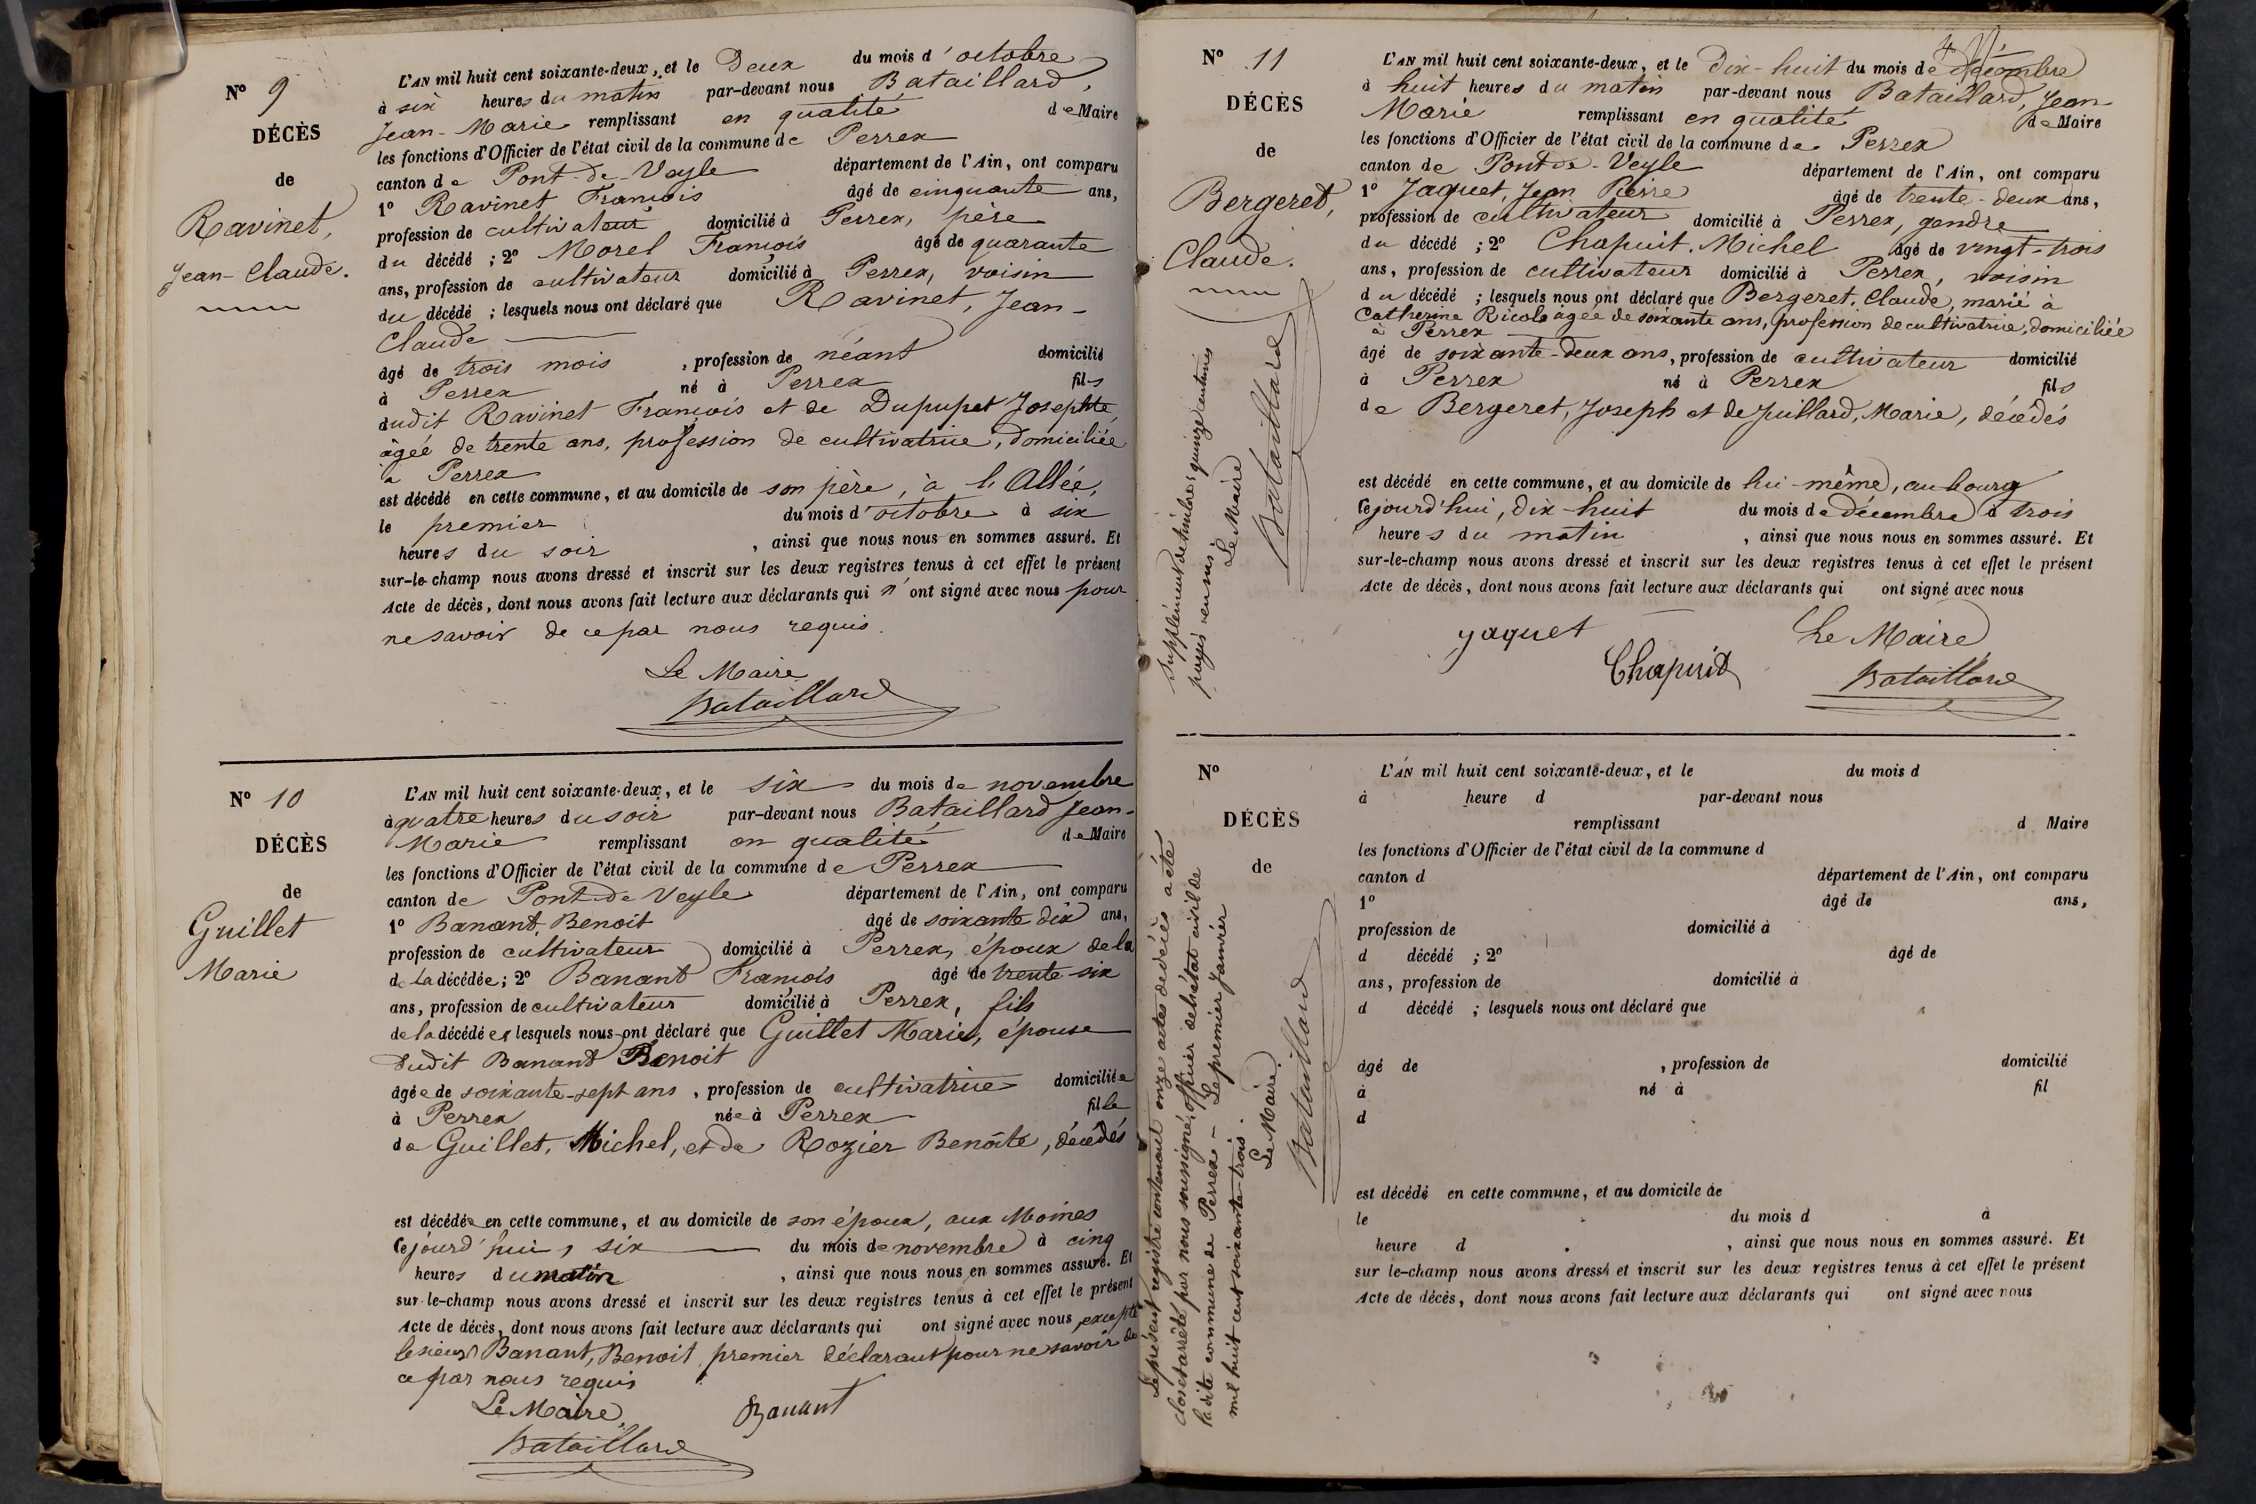 N° 9
DÉCÈS
de
Ravinet,
Jean-Claude.
L'AN mil huit cent soixante-deux, et le Deux du mois d'octobre
à six heures du matin par-devant nous Bataillard,
Jean-Marie remplissant en qualité de Maire
les fonctions d'Officier de l'état civil de la commune de Perrex
canton de Pont-de-Veyle département de l'Ain, ont comparu
1° Ravinet François âgé de cinquante ans,
profession de cultivateur domicilié à Perrex, père
du décédé ; 2° Morel François âgé de quarante
ans, profession de cultivateur domicilié à Perrex, voisin
du décédé ; lesquels nous ont déclaré que Ravinet, Jean-
Claude
âgé de trois mois, profession de néant domicilié
à Perrex né à Perrex fils
dudit Ravinet François et de Dupupet Josephte,
âgée de trente ans, profession de cultivatrice, domiciliée
à Perrex
est décédé en cette commune, et au domicile de son père, à l'Allée,
le premier du mois d'octobre à six
heures du soir, ainsi que nous nous en sommes assuré. Et
sur-le-champ nous avons dressé et inscrit sur les deux registres tenus à cet effet le présent
Acte de décès, dont nous avons fait lecture aux déclarants qui n'ont signé avec nous pour
ne savoir de ce par nous requis.
Le Maire
Bataillard
N° 10
DÉCÈS
de
Guillet
Marie
L'AN mil huit cent soixante-deux, et le six du mois de novembre
à quatre heures du soir par-devant nous Bataillard Jean-
Marie remplissant en qualité de Maire
les fonctions d'Officier de l'état civil de la commune de Perrex
canton de Pont-de-Veyle département de l'Ain, ont comparu
1° Banant, Benoit âgé de soixante dix ans,
profession de cultivateur domicilié à Perrex, époux de la
de la décédée ; 2° Banant François âgé de trente six
ans, profession de cultivateur domicilié à Perrex, fils
de la décédée ; lesquels nous ont déclaré que Guillet Marie, épouse
dudit Banant Benoit
âgée de soixante-sept ans, profession de cultivatrice domiciliée
à Perrex née à Perrex fille
de Guillet, Michel, et de Rozier Benoîte, décédés
est décédée en cette commune, et au domicile de son époux, aux Moines
Cejourd'hui, six du mois de novembre à cinq
heures du matin, ainsi que nous nous en sommes assuré. Et
sur-le-champ nous avons dressé et inscrit sur les deux registres tenus à cet effet le présent
Acte de décès, dont nous avons fait lecture aux déclarants qui ont signé avec nous, excepté
le sieur Banant, Benoit, premier déclarant pour ne savoir de
ce par nous requis
Le Maire Banant
Bataillard
N° 11
DÉCÈS
de
Bergeret,
Claude.
L'AN mil huit cent soixante-deux, et le Dix-huit du mois de décembre
à huit heures du matin par-devant nous Bataillard, Jean-
Marie remplissant en qualité de Maire
les fonctions d'Officier de l'état civil de la commune de Perrex
canton de Pont-de-Veyle département de l'Ain, ont comparu
1° Jaquet, Jean Pierre âgé de trente-deux ans,
profession de cultivateur domicilié à Perrex, gendre
du décédé ; 2° Chapuit, Michel âgé de vingt-trois
ans, profession de cultivateur domicilié à Perrex, voisin
du décédé ; lesquels nous ont déclaré que Bergeret, Claude, marié à
Catherine Ricol âgée de soixante ans, profession de cultivatrice, domiciliée
à Perrex
âgé de soixante-deux ans, profession de cultivateur domicilié
à Perrex né à Perrex fils
de Bergeret, Joseph et de Juillard, Marie, décédés
est décédé en cette commune, et au domicile de lui-même, au bourg
Cejourd'hui, dix-huit du mois de décembre à trois
heures du matin, ainsi que nous nous en sommes assuré. Et
sur-le-champ nous avons dressé et inscrit sur les deux registres tenus à cet effet le présent
Acte de décès, dont nous avons fait lecture aux déclarants qui ont signé avec nous
Jaquet Le Maire
Chapuit Bataillard
Supplément de timbre quinze centimes
payés en sus.
Le Maire
Bataillard
N°
DÉCÈS
de
L'AN mil huit cent soixante-deux, et le du mois d
à heure d par-devant nous
remplissant d Maire
les fonctions d'Officier de l'état civil de la commune d
canton d département de l'Ain, ont comparu
1° âgé de ans,
profession de domicilié à
d décédé ; 2° âgé de
ans, profession de domicilié à
d décédé ; lesquels nous ont déclaré que
âgé de , profession de domicilié
à né à fil
d
est décédé en cette commune, et au domicile de
le du mois d à
heure d , ainsi que nous nous en sommes assuré. Et
sur le-champ nous avons dressé et inscrit sur les deux registres tenus à cet effet le présent
Acte de décès, dont nous avons fait lecture aux déclarants qui ont signé avec nous
Le présent registre contenant onze actes de décès a été
clos et arrêté par nous soussigné, officier de l'état civil de
la dite commune de Perrex - Le premier Janvier
mil huit cent soixante trois.
Le Maire.
Bataillard